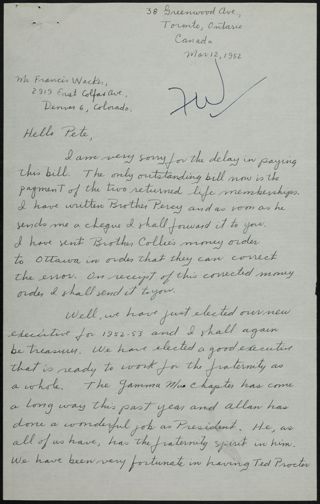 38 Greenwood Ave,
Toronto, Ontario
Canada
Mar 12, 1952
Mr. Francis Wacker,
2919 East Colfax Ave.,
Denver 6, Colorado.
FW
Hello Pete,
I am very sorry for the delay in paying
this bill. The only outstanding bill now is the
payment of the two returned life memberships.
I have written Brother Percy and as soon as he
sends me a cheque I shall forward it to you.
I have sent Brother Collie's money order
to Ottawa in order that they can correct
the error. On receipt of this corrected money
order I shall send it to you.
Well, we have just elected our new
executive for 1952-53 and I shall again
be treasurer. We have elected a good executive
that is ready to work for the fraternity as
a whole. The Gamma Mu Chapter has come
a long way this past year and Allan has
done a wonderful job as President. He, as
all of us have, has the fraternity spirit in him.
We have been very fortunate in having Ted Procter